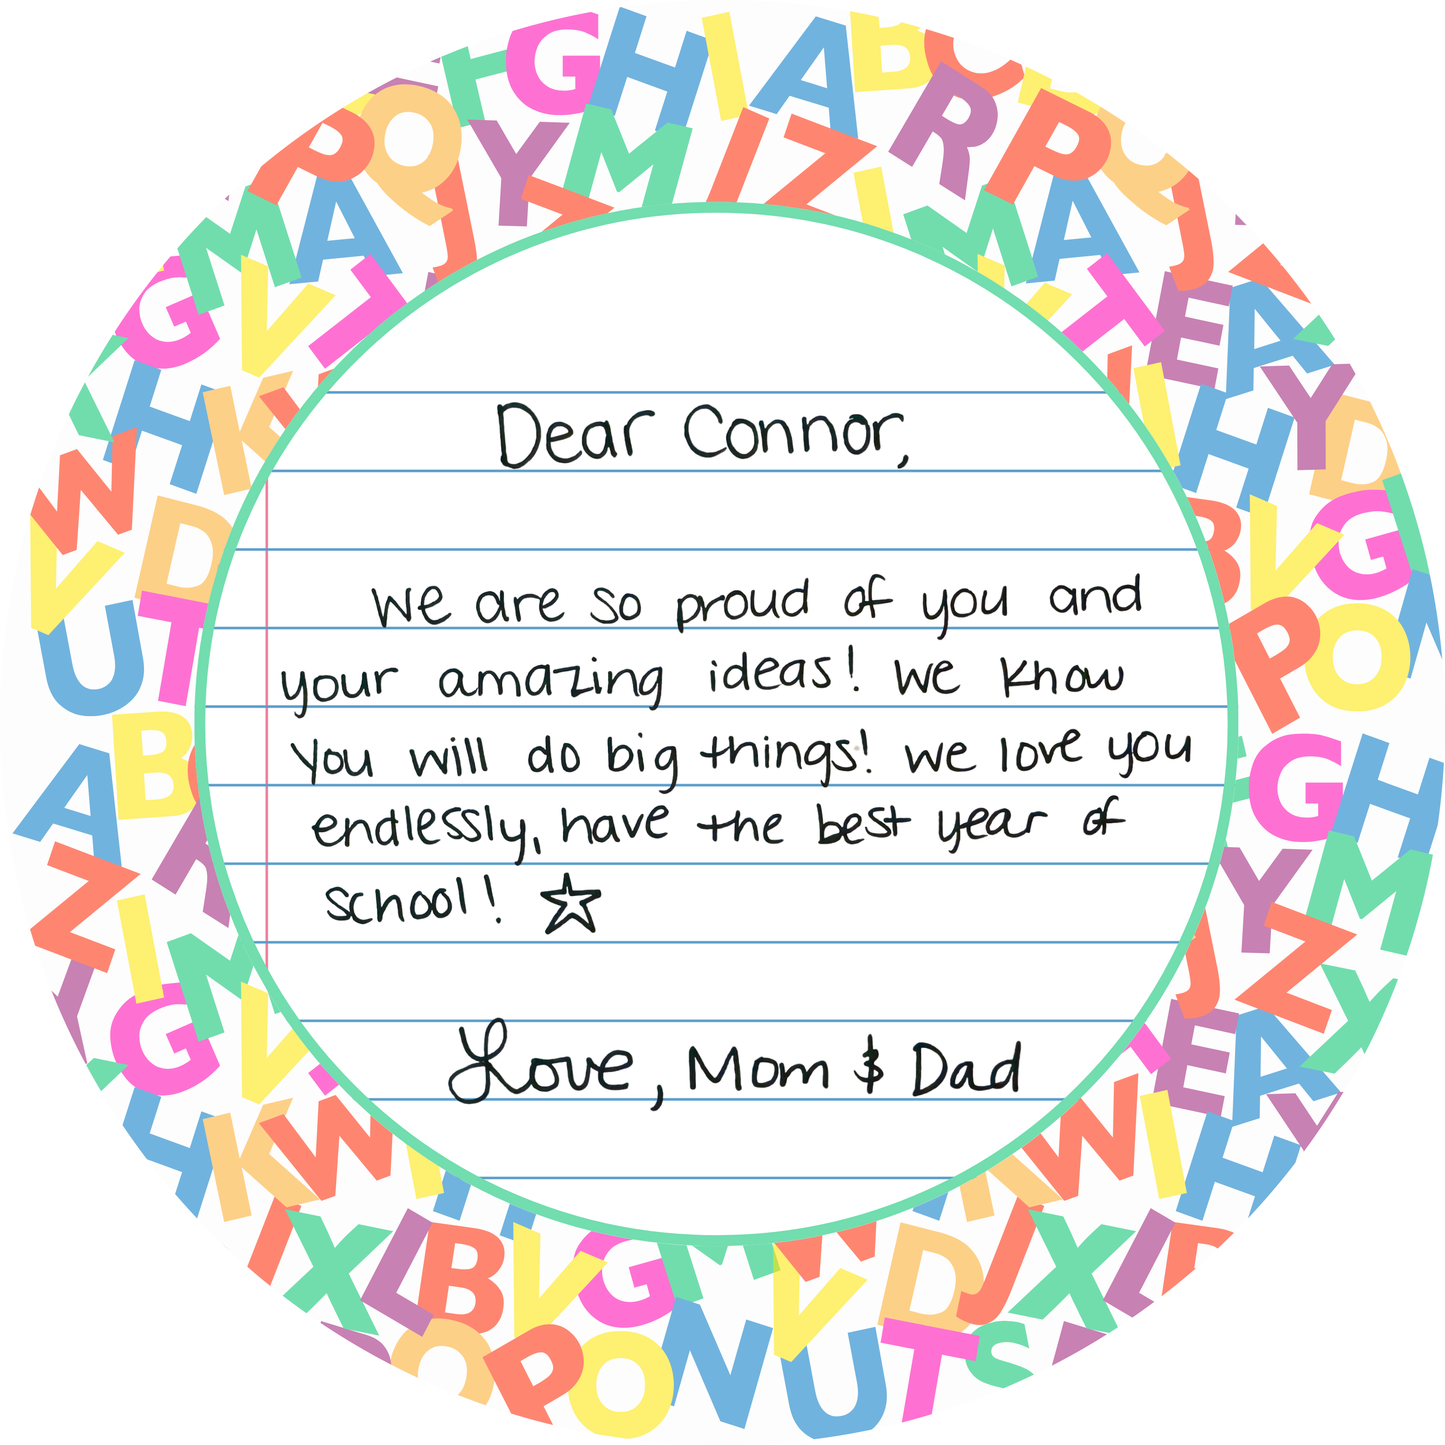 Dear Connor,
We are so proud of you and
your amazing ideas! We know
you will do big things! We love you
endlessly, have the best year of
school! ☆
Love, Mom & Dad